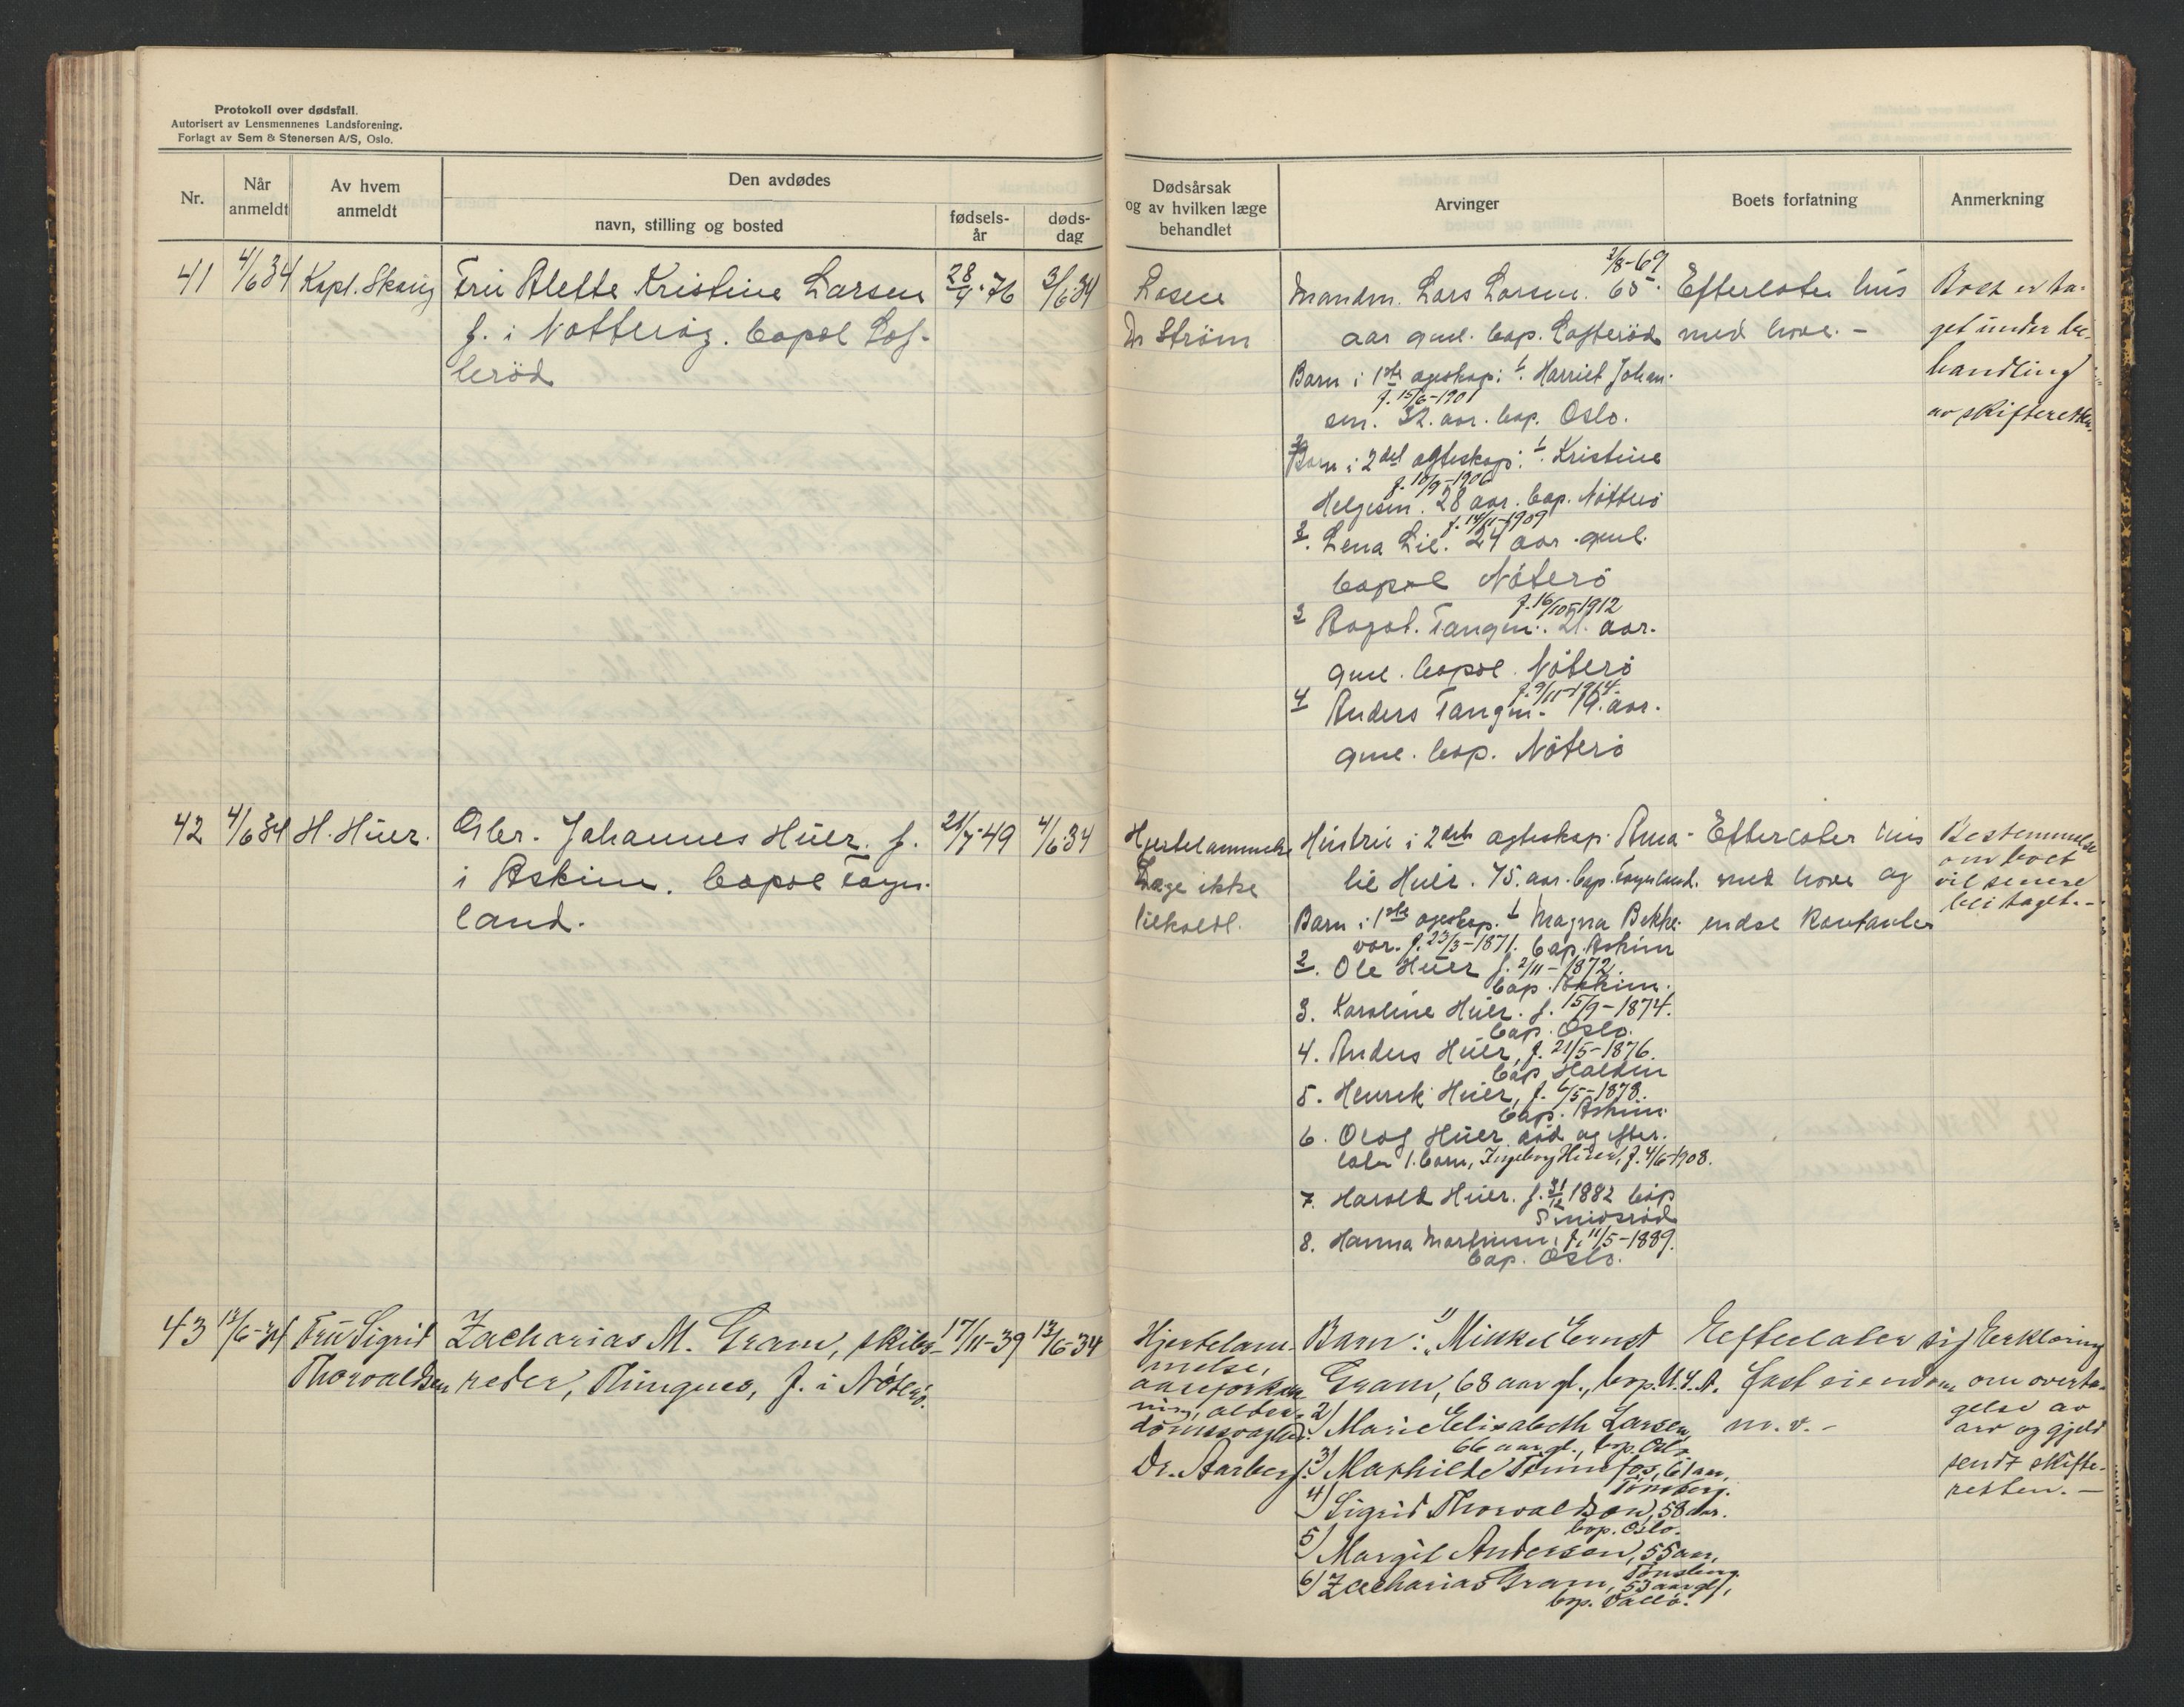 Protokoll over dødsfall.
Autorisert av Lensmennenes Landsforening.
Forlagt av Sem & Stenersen A/S, Oslo.
Nr.
Når anmeldt
Av hvem anmeldt
Den avdødes
navn, stilling og bosted
fødsels-år
døds-dag
Dødsårsak
og av hvilken læge
behandlet
Arvinger
Boets forfatning
Anmerkning
41 4/6 34 Kapt. Fru Alette Kristine Larsen 28/9-76 3/6-34
f. i Nøtterøy. bopæl Lof-
terød
Dr Strøm
3/8-69
Manden. Lars Larsen. 65
aar gml. bop. Lofterød
Barn i 1ste ægteskap: 1. Harriet Johan-
f. 15/6-1901
sen. 32. aar. bop. Oslo.
Barn i 2det ægteskap: 1. Kristine
f. 10/9-1906
Helgesen. 28 aar. bop. Nøtterø
f. 14/11-1909
2. Lena Lie. 24 aar. gml.
bopæl Nøterø
f. 16/10-1912
3 Aagot. Tangen. 21. aar.
gml. bopæl. Nøterø
f. 9/11-1914.
4 Anders Tangen. 19. aar.
gml. bop. Nøterø
Efterlater hus
med have. -
Boet er ta-
get under be-
handling
av skifteretten.
42 4/6 34 H. Huer. Johannes Huer. f. 21/7-49 4/6-34
i Askim. bopæl Tøyn-
land.
Hjertelammelse
Læge ikke
tilkaldt.
Hustru i 2det ægteskap. Ama-
lie Huer. 75. aar. bop. Tøynland.
Barn i 1ste ægteskap. 1 Magna Bekke-
vor. f. 23/3-1871. bop. Askim
2. Ole Huer f. 2/11-1872.
bop. Askim.
3. Karoline Huer. f. 15/9-1874.
bop. Oslo.
4. Anders Huer, f. 21/5-1876.
bop Halden
5. Henrik Huer, f. 6/5-1878.
bop. Askim
6. Olaf Huer død og efter-
later 1. barn, Ingeborg Huer, f. 4/6-1908.
7. Harald Huer. f. 31/12 1882 bop
Smidsrød
8. Hanna Martinsen, f. 11/5-1889.
bop. Oslo.
Efterlater hus
med have og
endel kontanter
Bestemmelse
om boet
vil senere
bli taget. -
43 12/6-34 Fru Sigrid Zacharias M. Gram, skibs- 17/11-39 12/6-34
Thorvaldsen reder, f. i Nøterø.
Hjertelam-
melse,
aareforkalk-
ning, alder-
domssvaghet.
Dr. Aarberg.
Barn: 1) Mikkel Ernst
Gram, 68 aar gl., bop. U.S.A.
2) Marie Elisabeth Larsen,
66 aar gl., bop. Oslo
3) Mathilde Tømmfos, 61 aar,
Tønsberg.
4) Sigrid Thorvaldsen, 58 aar.
bop. Oslo.
5) Margit Andersen, 55 aar,
Tønsberg.
6) Zacharias Gram, 53 aar gl.,
bop. Vallø.
Efterlater sig
fast eiendom
m.v. -
Erklæring
om overta-
gelse av
arv og gjeld
sendt skifte-
retten. -